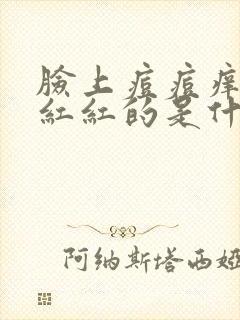 臉上痘痘痒
紅紅的是什
阿纳斯塔西娅